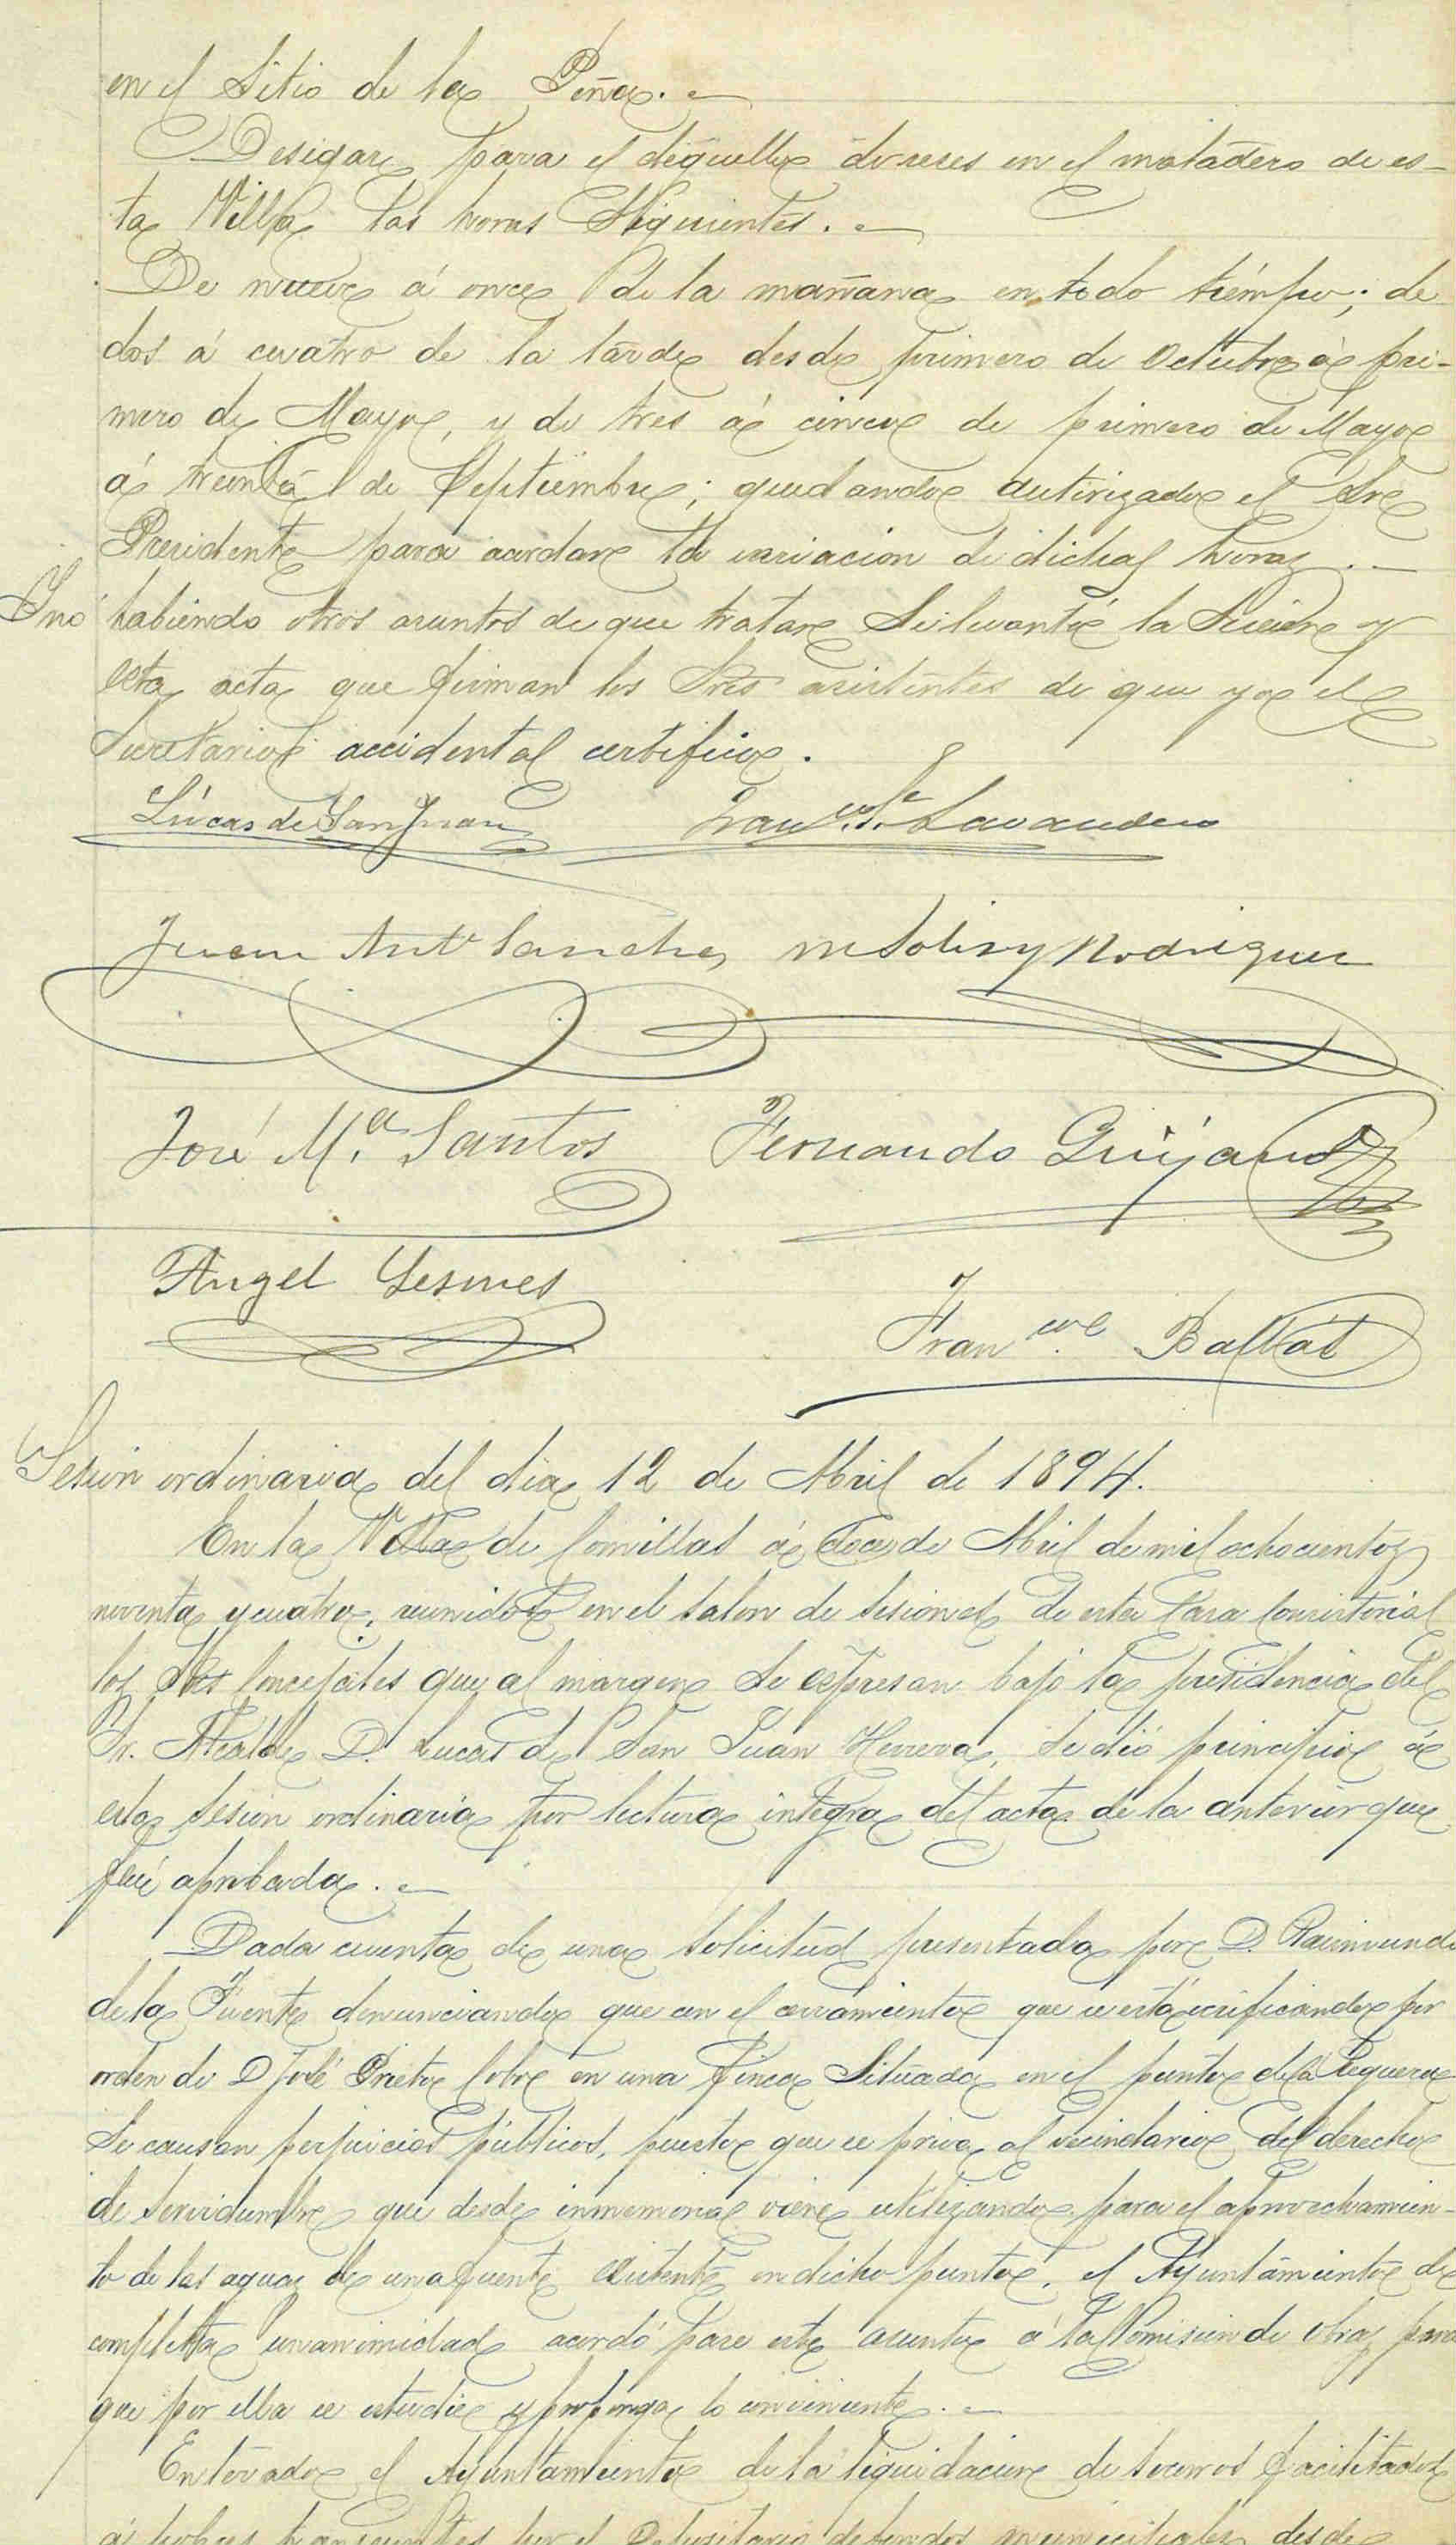 en el Sitio de la Peña.
Desigar para el degüello de reses en el matadero de es-
ta Villa las horas Siguientes.
De nueve á once de la mañana en todo tiémpo; de
dos á cuatro de la tarde desde primero de Octubre á pri-
mero de Mayo, y de tres á cinco de primero de Mayo
á treinta de Septiembre; quedando autirizado el Sr
Presidente para acordar la variacion de dichas horas.
Y no habiendo otros asuntos de que tratar Se levantó la Sesión y
esta acta que firman los Sres asistentes de que yo el
Secretario accidental certifico.
Lúcas de San Juan Franco S. Lavandero
Juan Anto Sanchez M Solis y Rodriguez
José M.a Santos Fernando Quijano
Angel Lesmes
Franco Ballat
Sesion ordinaria del dia 12 de Abril de 1894.
En la Villa de Comillas á doce de Abril de mil ochocientos
noventa y cuatro, reunidos en el salon de sesiones de esta Casa Consistorial
los Sres Concejales que al margen se espresan bajo la presidencia del
Sr. Alcalde D. Lucas de San Juan Herrera, se dió principio á
esta sesion ordinaria por lectura integra del acta de la anterior que
fué aprobada.
Dada cuenta de una solicitud presentada por D. Raimundo
de la Fuente denunciando que con el cerramiento que se está verificando por
orden de D José Prieto Cobo en una finca Situada en el punto de la Reguera
Se causan perjuicios públicos, puesto que se priva al vecindario del derecho
de servidumbre que desde inmemorial viene utilizando para el aprovechamien-
to de las aguas de una fuente existente en dicho punto, el Ayuntamiento de
completa unanimidad acordó pase este asunto á la Comision de obras para
que por ella se estudie y proponga lo conveniente.
Enterado el Ayuntamiento de la liquidacion de socorros facilitados
á pobres transeuntes por el Depositario de fondos municipales desde